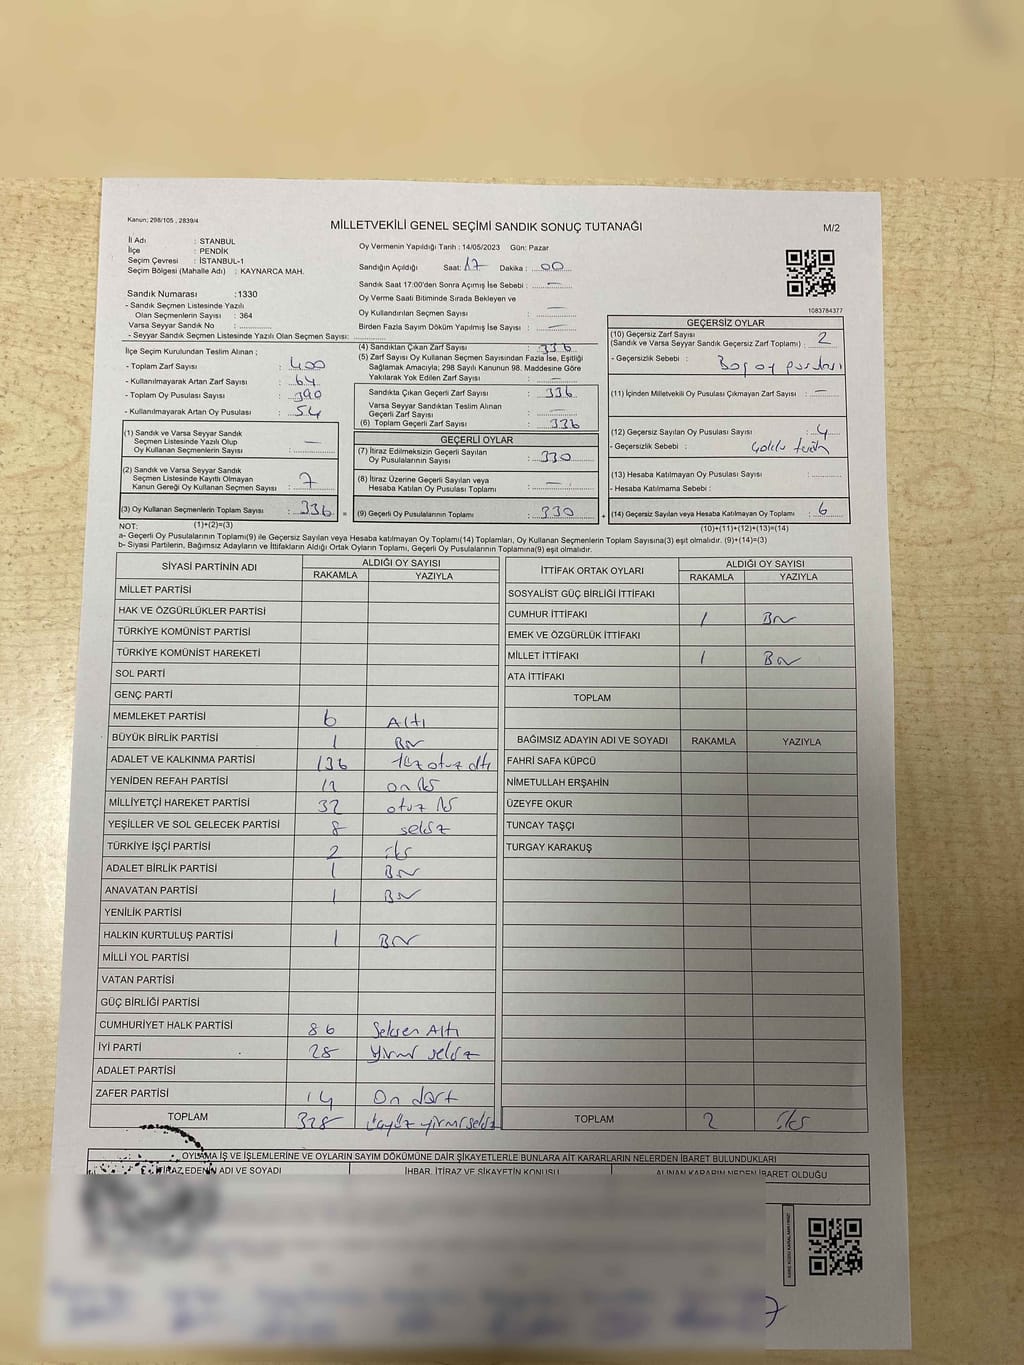 Kanun; 298/105 , 2839/4
MİLLETVEKİLİ GENEL SEÇİMİ SANDIK SONUÇ TUTANAĞI
M/2
İl Adı : STANBUL
İlçe : PENDİK
Seçim Çevresi : İSTANBUL-1
Seçim Bölgesi (Mahalle Adı) : KAYNARCA MAH.
Sandık Numarası :1330
- Sandık Seçmen Listesinde Yazılı
Olan Seçmenlerin Sayısı : 364
Varsa Seyyar Sandık No :
- Seyyar Sandık Seçmen Listesinde Yazılı Olan Seçmen Sayısı:
Oy Vermenin Yapıldığı Tarih : 14/05/2023 Gün: Pazar
Sandığın Açıldığı Saat: 17 Dakika : 00
Sandık Saat 17:00'den Sonra Açımış İse Sebebi : —
Oy Verme Saati Bitiminde Sırada Bekleyen ve
Oy Kullandırılan Seçmen Sayısı : —
Birden Fazla Sayım Döküm Yapılmış İse Sayısı : —
1083784377
İlçe Seçim Kurulundan Teslim Alınan ;
- Toplam Zarf Sayısı : 400
- Kullanılmayarak Artan Zarf Sayısı : 64
- Toplam Oy Pusulası Sayısı : 390
- Kullanılmayarak Artan Oy Pusulası : 54
(1) Sandık ve Varsa Seyyar Sandık
Seçmen Listesinde Yazılı Olup
Oy Kullanan Seçmenlerin Sayısı : —
(2) Sandık ve Varsa Seyyar Sandık
Seçmen Listesinde Kayıtlı Olmayan
Kanun Gereği Oy Kullanan Seçmen Sayısı : 7
(3) Oy Kullanan Seçmenlerin Toplam Sayısı : 336 =
(4) Sandıktan Çıkan Zarf Sayısı : 336
(5) Zarf Sayısı Oy Kullanan Seçmen Sayısından Fazla İse, Eşitliği
Sağlamak Amacıyla; 298 Sayılı Kanunun 98. Maddesine Göre
Yakılarak Yok Edilen Zarf Sayısı : —
Sandıkta Çıkan Geçerli Zarf Sayısı : 336
Varsa Seyyar Sandıktan Teslim Alınan
Geçerli Zarf Sayısı : —
(6) Toplam Geçerli Zarf Sayısı : 336
GEÇERLİ OYLAR
(7) İtiraz Edilmeksizin Geçerli Sayılan
Oy Pusulalarının Sayısı : 330
(8) İtiraz Üzerine Geçerli Sayılan veya
Hesaba Katılan Oy Pusulası Toplamı : —
(9) Geçerli Oy Pusulalarının Toplamı : 330 +
GEÇERSİZ OYLAR
(10) Geçersiz Zarf Sayısı
(Sandık ve Varsa Seyyar Sandık Geçersiz Zarf Toplamı) : 2
- Geçersizlik Sebebi : Boş oy pusulası
(11) İçinden Milletvekili Oy Pusulası Çıkmayan Zarf Sayısı : —
(12) Geçersiz Sayılan Oy Pusulası Sayısı : 4
- Geçersizlik Sebebi :
(13) Hesaba Katılmayan Oy Pusulası Sayısı :
- Hesaba Katılmama Sebebi :
(14) Geçersiz Sayılan veya Hesaba Katılmayan Oy Toplamı : 6
NOT: (1)+(2)=(3)
(10)+(11)+(12)+(13)=(14)
a- Geçerli Oy Pusulalarının Toplamı(9) ile Geçersiz Sayılan veya Hesaba katılmayan Oy Toplamı(14) Toplamları, Oy Kullanan Seçmenlerin Toplam Sayısına(3) eşit olmalıdır. (9)+(14)=(3)
b- Siyasi Partilerin, Bağımsız Adayların ve İttifakların Aldığı Ortak Oyların Toplamı, Geçerli Oy Pusulalarının Toplamına(9) eşit olmalıdır.
SİYASİ PARTİNİN ADI ALDIĞI OY SAYISI
RAKAMLA YAZIYLA
MİLLET PARTİSİ
HAK VE ÖZGÜRLÜKLER PARTİSİ
TÜRKİYE KOMÜNİST PARTİSİ
TÜRKİYE KOMÜNİST HAREKETİ
SOL PARTİ
GENÇ PARTİ
MEMLEKET PARTİSİ 6 Altı
BÜYÜK BİRLİK PARTİSİ 1 Bir
ADALET VE KALKINMA PARTİSİ 136 Yüz otuz altı
YENİDEN REFAH PARTİSİ 12 on iki
MİLLİYETÇİ HAREKET PARTİSİ 32 otuz iki
YEŞİLLER VE SOL GELECEK PARTİSİ 8 sekiz
TÜRKİYE İŞÇİ PARTİSİ 2 iki
ADALET BİRLİK PARTİSİ 1 Bir
ANAVATAN PARTİSİ 1 Bir
YENİLİK PARTİSİ
HALKIN KURTULUŞ PARTİSİ 1 Bir
MİLLİ YOL PARTİSİ
VATAN PARTİSİ
GÜÇ BİRLİĞİ PARTİSİ
CUMHURİYET HALK PARTİSİ 86 Seksen Altı
İYİ PARTİ 28 yirmi sekiz
ADALET PARTİSİ
ZAFER PARTİSİ 14 On dört
TOPLAM 328 üçyüz yirmi sekiz
İTTİFAK ORTAK OYLARI ALDIĞI OY SAYISI
RAKAMLA YAZIYLA
SOSYALİST GÜÇ BİRLİĞİ İTTİFAKI
CUMHUR İTTİFAKI 1 Bir
EMEK VE ÖZGÜRLÜK İTTİFAKI
MİLLET İTTİFAKI 1 Bir
ATA İTTİFAKI
TOPLAM
BAĞIMSIZ ADAYIN ADI VE SOYADI RAKAMLA YAZIYLA
FAHRİ SAFA KÜPCÜ
NİMETULLAH ERŞAHİN
ÜZEYFE OKUR
TUNCAY TAŞÇI
TURGAY KARAKUŞ
TOPLAM 2 iki
OYLAMA İŞ VE İŞLEMLERİNE VE OYLARIN SAYIM DÖKÜMÜNE DAİR ŞİKAYETLERLE BUNLARA AİT KARARLARIN NELERDEN İBARET BULUNDUKLARI
İTİRAZ EDENİN ADI VE SOYADI İHBAR, İTİRAZ VE ŞİKAYETİN KONUSU ALINAN KARARIN NEDEN İBARET OLDUĞU